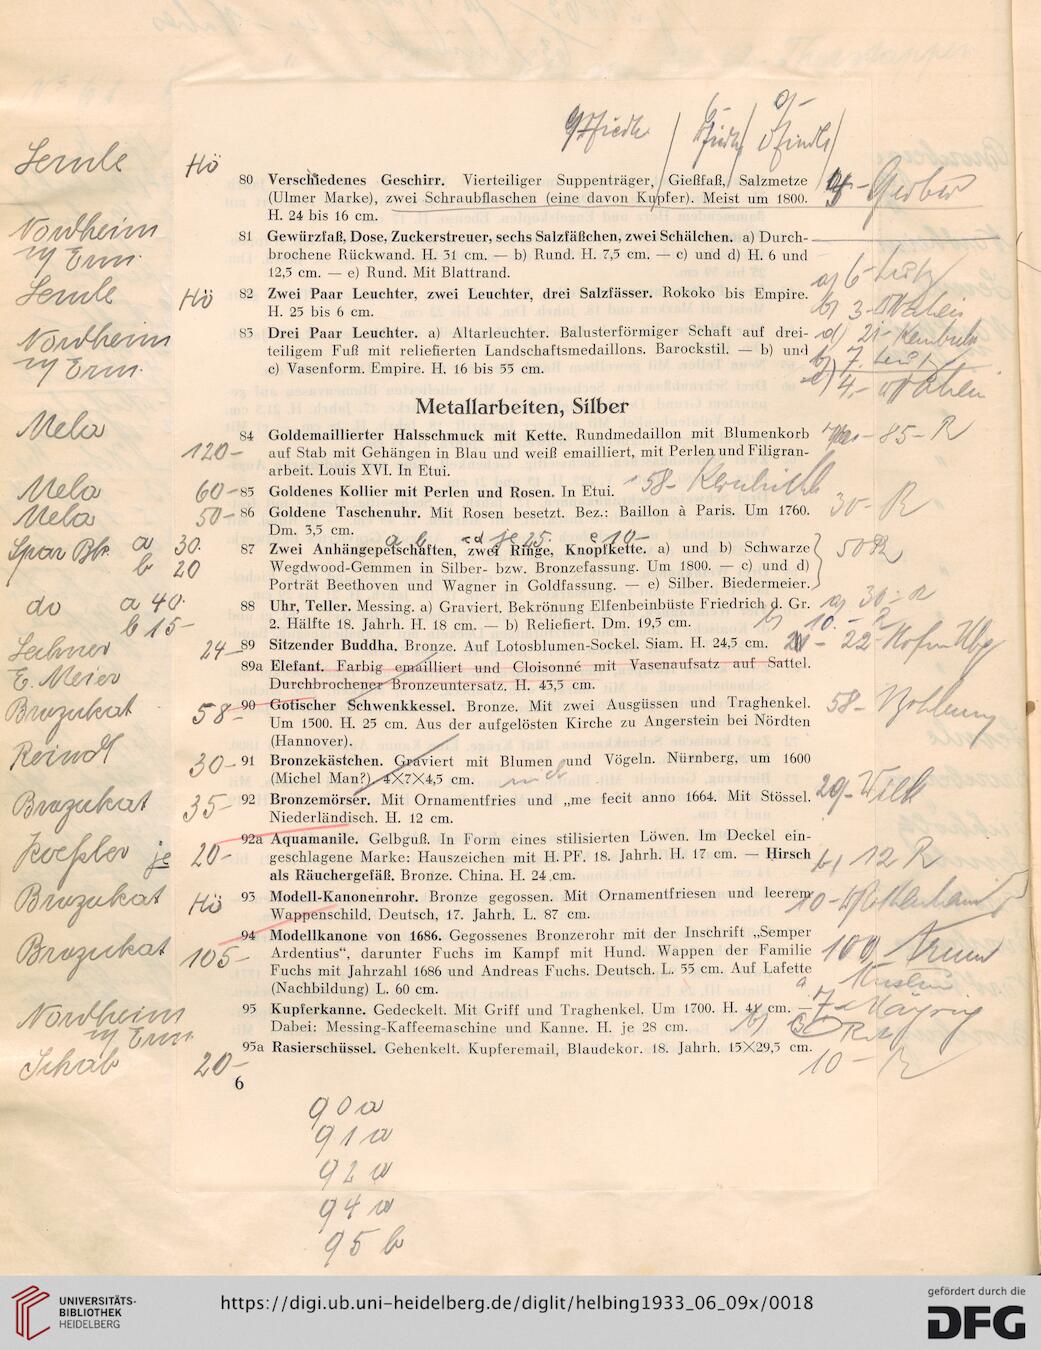 Hö
80 Verschiedenes Geschirr. Vierteiliger Suppenträger, Gießfaß, Salzmetze
(Ulmer Marke), zwei Schraubflaschen (eine davon Kupfer). Meist um 1800.
H. 24 bis 16 cm.
Nordheim
81 Gewürzfaß, Dose, Zuckerstreuer, sechs Salzfäßchen, zwei Schälchen. a) Durch-
brochene Rückwand. H. 31 cm. — b) Rund. H. 7,5 cm. — c) und d) H. 6 und
12,5 cm. — e) Rund. Mit Blattrand.
Hö
82 Zwei Paar Leuchter, zwei Leuchter, drei Salzfässer. Rokoko bis Empire.
H. 25 bis 6 cm.
Nordheim
83 Drei Paar Leuchter. a) Altarleuchter. Balusterförmiger Schaft auf drei-
teiligem Fuß mit reliefierten Landschaftsmedaillons. Barockstil. — b) und
c) Vasenform. Empire. H. 16 bis 55 cm.
Metallarbeiten, Silber
Mela 120-
84 Goldemaillierter Halsschmuck mit Kette. Rundmedaillon mit Blumenkorb 85- R
auf Stab mit Gehängen in Blau und weiß emailliert, mit Perlen und Filigran-
arbeit. Louis XVI. In Etui.
Mela 60-
85 Goldenes Kollier mit Perlen und Rosen. In Etui. 58-
Mela 50-
86 Goldene Taschenuhr. Mit Rosen besetzt. Bez.: Baillon à Paris. Um 1760. 30- R
Dm. 3,5 cm.
a b c d je 25. e 10-
a 30.
b 20
87 Zwei Anhängepetschaften, zwei Ringe, Knopfkette. a) und b) Schwarze 50 R
Wegdwood-Gemmen in Silber- bzw. Bronzefassung. Um 1800. — c) und d)
Porträt Beethoven und Wagner in Goldfassung. — e) Silber. Biedermeier.
do a 40.
b 15-
88 Uhr, Teller. Messing. a) Graviert. Bekrönung Elfenbeinbüste Friedrich d. Gr. a) 30- R
2. Hälfte 18. Jahrh. H. 18 cm. — b) Reliefiert. Dm. 19,5 cm. b) 10.- R
Lechner 24-
89 Sitzender Buddha. Bronze. Auf Lotosblumen-Sockel. Siam. H. 24,5 cm. 22-
E. Meier
89a Elefant. Farbig emailliert und Cloisonné mit Vasenaufsatz auf Sattel.
Durchbrochener Bronzeuntersatz. H. 43,5 cm.
Brozukat 58-
90 Gotischer Schwenkkessel. Bronze. Mit zwei Ausgüssen und Traghenkel. 58-
Um 1500. H. 25 cm. Aus der aufgelösten Kirche zu Angerstein bei Nördten
(Hannover).
Reindl 30-
91 Bronzekästchen. Graviert mit Blumen und Vögeln. Nürnberg, um 1600
(Michel Man?) 4×7×4,5 cm.
Brozukat 35-
92 Bronzemörser. Mit Ornamentfries und „me fecit anno 1664. Mit Stössel. 29-
Niederländisch. H. 12 cm.
je 20-
92a Aquamanile. Gelbguß. In Form eines stilisierten Löwen. Im Deckel ein-
geschlagene Marke: Hauszeichen mit H. PF. 18. Jahrh. H. 17 cm. — Hirsch b) 12 R
als Räuchergefäß. Bronze. China. H. 24 cm.
Brozukat Hö
93 Modell-Kanonenrohr. Bronze gegossen. Mit Ornamentfriesen und leerem 10-
Wappenschild. Deutsch, 17. Jahrh. L. 87 cm.
Brozukat 105-
94 Modellkanone von 1686. Gegossenes Bronzerohr mit der Inschrift „Semper
Ardentius“, darunter Fuchs im Kampf mit Hund. Wappen der Familie 100
Fuchs mit Jahrzahl 1686 und Andreas Fuchs. Deutsch. L. 55 cm. Auf Lafette
(Nachbildung) L. 60 cm.
Nordheim
95 Kupferkanne. Gedeckelt. Mit Griff und Traghenkel. Um 1700. H. 44 cm. —
Dabei: Messing-Kaffeemaschine und Kanne. H. je 28 cm.
Schab 20-
95a Rasierschüssel. Gehenkelt. Kupferemail, Blaudekor. 18. Jahrh. 15×29,5 cm. 10- R
6
90a
91a
92a
94a
95b
UNIVERSITÄTS-
BIBLIOTHEK
HEIDELBERG
https://digi.ub.uni-heidelberg.de/diglit/helbing1933_06_09x/0018
gefördert durch die
DFG